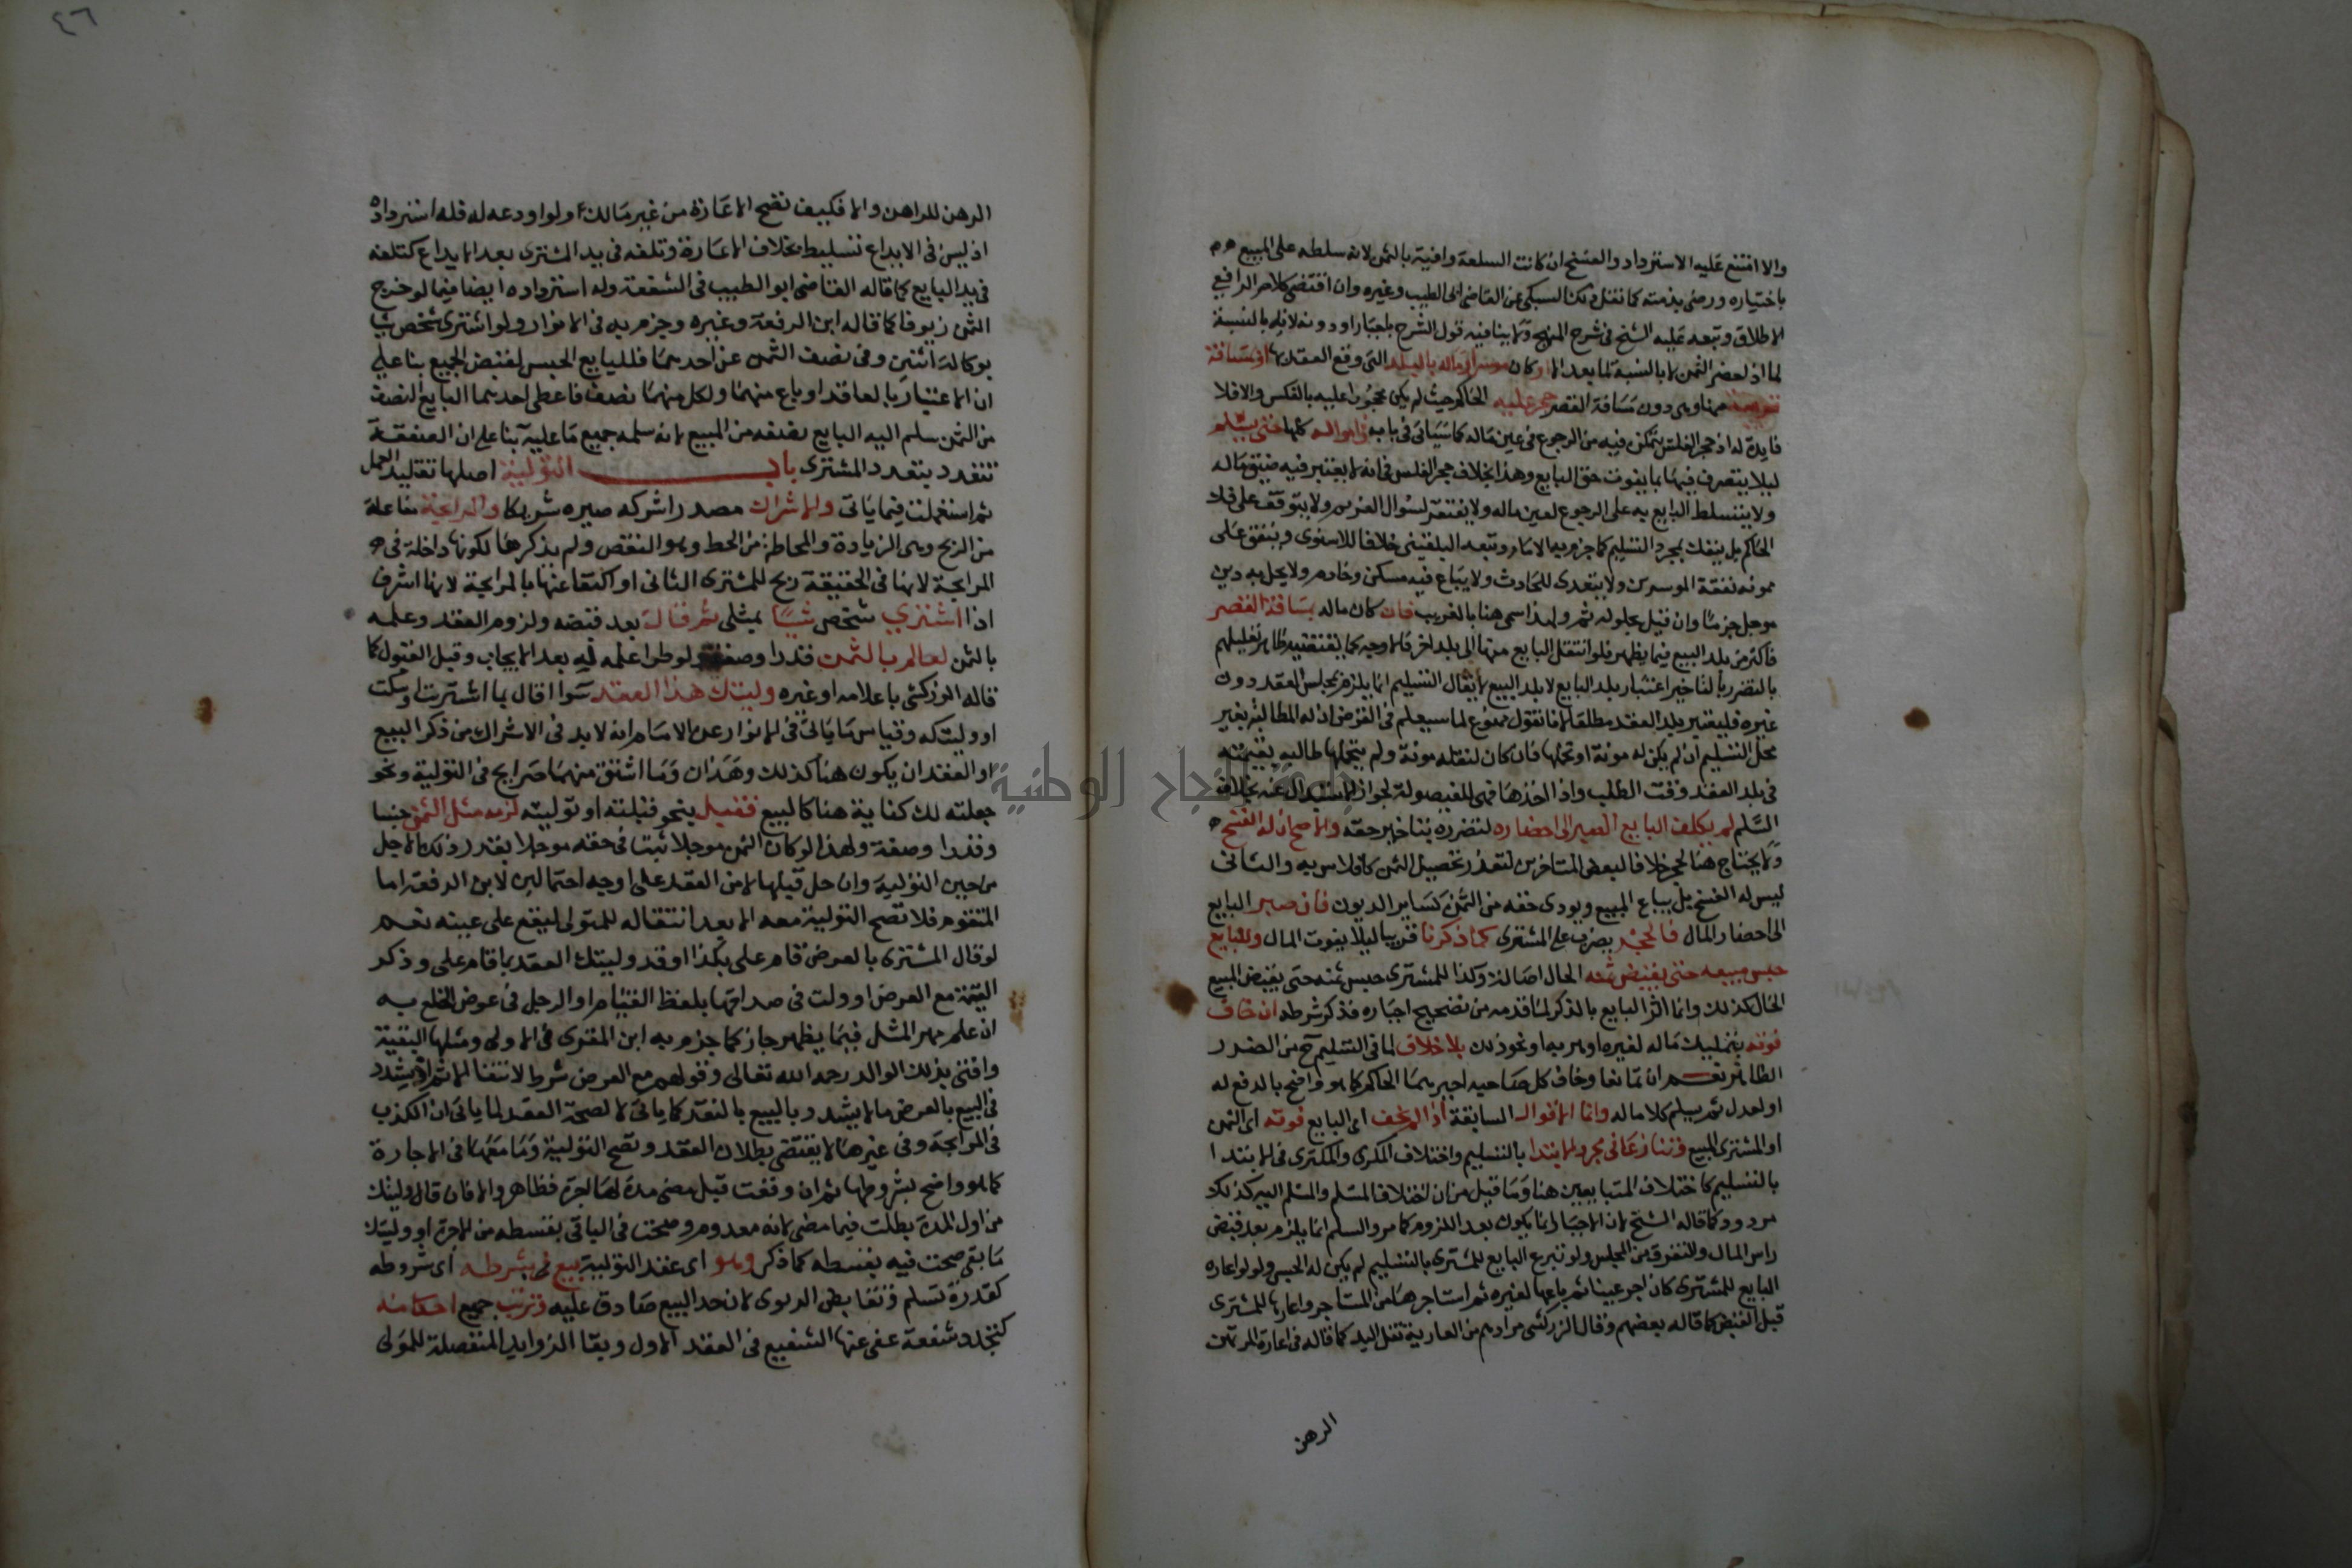 والا امتنع عليه الاسترداد والفسخ ان كانت السلعة وافية بالثمن لانه سلطه على المبيع
باختياره ورضى بذمته كما نقل ذلك السبكى عن القاضى ابى الطيب وغيره وان اقتضى كلام الرافعي
الاطلاق وتبعه عليه الشيخ فى شرح المنهج ولا ينافيه قول الشرح باعتبار او دونه لانه بالنسبة
لما اذا حضر الثمن لا بالنسبة لما بعد او كان موسرا وماله بالبلد التى وقع العقد بها او مسافة
قريبة منها وهى دون مسافة القصر حجر عليه الحاكم حيث لم يكن محجورا عليه بالفلس والا فلا
فايدة له اذ حجر الفلس يتمكن فيه من الرجوع فى عين ماله كما سياتى فى بابه فى امواله كلها حتى يسلم
ليلا يتصرف فيها بما يفوت حق البايع وهذا بخلاف حجر الفلس فى انه لا يعتبر فيه ضيق ماله
ولا يتسلط البايع به على الرجوع لعين ماله ولا يفتقر لسوال الغريم ولا يتوقف على فك
الحاكم بل ينفك بمجرد التسليم كما جزم به الامام وتبعه البلقينى خلافا للاسنوى وينفق على
ممونه نفقة الموسرين ولا يتعدى للحادث ولا يباع فيه مسكن وخادم ولا يحل به دين
موجل جزما وان قيل بحلوله ثم ولهذا سمى هنا بالغريب فان كان ماله بمسافة القصر
فاكثر من بلد البيع فيما يظهر فلو انتقل البايع منها الى بلد اخر فالاوجه كما يقتضيه ظاهر تعليلهم
بالتضرر بالتاخير اعتبار بلد البايع لا بلد البيع لا يقال التسليم انما يلزم بمجلس العقد دون
غيره فليعتبر بلد العقد مطلقا لانا نقول ممنوع لما سيعلم فى القرض ان له المطالبة بغير
محل التسليم ان لم يكن له مونة او تحملها فان كان لنقله مونة ولم يتحملها طالبه بقيمته
فى بلد العقد وقت الطلب واذا اخذها فهى للفيصولة لجواز الاستبدال عنه بخلاف
السلم لم يكلف البايع الصبر الى احضاره لتضرره بتاخير حقه والاصح ان له الفسخ
ولا يحتاج هنا لحجر خلافا لبعض المتاخرين لتعذر تحصيل الثمن كافلاس به والثانى
ليس له الفسخ بل يباع المبيع ويودى حقه من الثمن كساير الديون فان صبر البايع
الى احضار المال فالحجر يضرب على المشترى كما ذكرنا قريبا ليلا يفوت المال وللبايع
حبس مبيعه حتى يقبض ثمنه الحال اصالة وكذا للمشترى حبس ثمنه حتى يقبض المبيع
الحال كذلك وانما اثر البايع بالذكر لما قدمه من تصحيح اجباره فذكر شرطه ان خاف
فوته بتمليك ماله لغيره او هربه او نحو ذلك بلا خلاف لما فى التسليم ح من الضرر
الظاهر نعم ان تمانعا وخاف كل صاحبه اجبرهما الحاكم كما هو واضح بالدفع له
او لعدل ثم يسلم كلا ماله وانما الاقوال السابقة اذا لم يخف اى البايع فوته اى الثمن
او المشترى المبيع وتنازعا فى مجرد الابتدا بالتسليم واختلاف المكرى والمكترى فى الابتدا
بالتسليم كاختلاف المتبايعين هنا وما قيل من ان اختلاف المسلم والمسلم اليه كذلك
مردود كما قاله الشيخ لان الاجبار انما يكون بعد اللزوم كما مر والسلم انما يلزم بعد قبض
راس المال والتفرق من المجلس ولو تبرع البايع للمشترى بالتسليم لم يكن له الحبس ولو اعاره
البايع للمشترى كان اجر عينا ثم باعها لغيره ثم استاجرها من المستاجر واعارها للمشترى
قبل القبض كما قاله بعضهم وقال الزركشى مرادهم من العارية نقل اليد كما قاله فى اعارة المرتهن
الرهن
٤٦
الرهن للراهن والا فكيف تصح الاعارة من غير مالك او لو اودعه له فله استرداده
اذ ليس فى الايداع تسليط بخلاف الاعارة وتلفه فى يد المشترى بعد الايداع كتلفه
فى يد البايع كما قاله القاضى ابو الطيب فى الشفعة وله استرداده ايضا فيما لو خرج
الثمن زيوفا كما قاله ابن الرفعة وغيره وجزم به فى الانوار ولو اشترى شخص شيا
بوكالة اثنين وفى نصف الثمن عن احدهما فللبايع الحبس لقبض الجميع بنا على
ان الاعتبار بالعاقد او باع منهما ولكل منهما نصف فاعطى احدهما البايع النصف
من الثمن سلم اليه البايع نصفه من المبيع لانه سلمه جميع ما عليه بنا على ان الصفقة
تتعدد بتعدد المشترى باب التولية اصلها تقليد العمل
ثم استعملت فيما ياتى والاشراك مصدر اشركه صيره شريكا والمرابحة مفاعلة
من الربح وهى الزيادة والمحاطة من الحط وهو النقص ولم يذكرها لكونها داخلة فى
المرابحة لانها فى الحقيقة ربح للمشترى الثانى او اكتفا عنها بالمرابحة لانها اشرف
اذا اشترى شخص شيا بمثلى ثم قال بعد قبضه ولزوم العقد وعلمه
بالثمن لعالم بالثمن قدرا وصفة ولو طرا علمه له بعد الايجاب وقبل القبول كما
قاله الزركشى باعلامه او غيره وليتك هذا العقد سوا اقال بما اشتريت او سكت
او وليتكه وقياس ما ياتى فى الانوار عن الامام انه لابد فى الاشراك من ذكر البيع
او العقد ان يكون هنا كذلك وهذان وما اشتق منهما صرايح فى التولية ونحو
جعلته لك كناية هنا كالبيع فقبل بنحو قبلته او توليته لزمه مثل الثمن جنسا
وقدرا وصفة ولهذا لو كان الثمن موجلا ثبت فى حقه موجلا بقدر ذلك الاجل
من حين التولية وان حل قبلها لا من العقد على اوجه احتمالين لابن الرفعة اما
المتقوم فلا تصح التولية معه الا بعد انتقاله للمتولى ليقع على عينه نعم
لو قال المشترى بالعرض قام على بكذا او قد وليتك العقد بما قام على وذكر
القيمة مع العرض او ولت فى صداقها بلفظ القيام او الرجل فى عوض الخلع به
ان علم مهر المثل فيما يظهر جاز كما جزم به ابن المقرى فى الاولى ومثلها البقية
وافتى بذلك الوالد رحمه الله تعالى وقولهم مع العرض شرط لانتفا الاثم اذ يشدد
فى البيع بالعرض ما لا يشدد بالبيع بالنقد كما ياتى لا لصحة العقد لما ياتى ان الكذب
فى المرابحة وفى غيرها لا يقتضى بطلان العقد وتصح التولية وما معها فى الاجارة
كما هو واضح بشروطها ثم ان وقعت قبل مضى مدة لها اجرة فظاهر والا فان قال وليتك
من اول المدة بطلت فيما مضى لانه معدوم وصحت فى الباقى بقسطه من الاجرة او وليتك
ما بقى صحت فيه بقسطه كما ذكر وهو اى عقد التولية بيع فى شرطه اى شروطه
كقدرة تسلم وتقابض الربوى لان حد البيع صادق عليه وترتب جميع احكامه
كتجدد شفعة عفى عنها الشفيع فى العقد الاول وبقا الزوايد المنفصلة للمولى
جامعة النجاح الوطنية